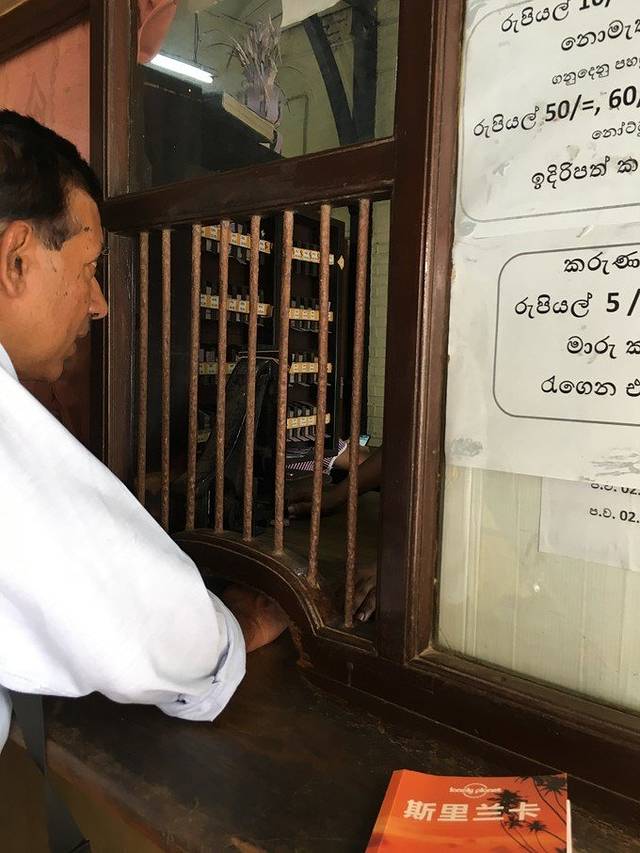 රුපියල් 10/
නොමැක
ගනුදෙනු පහ
රුපියල් 50/=, 60/
නෝට්ටු
ඉදිරිපත් ක
කරුණ
රුපියල් 5 /
මාරු ක
රැගෙන එ
ප.ව. 02.
ප.ව. 02.
lonely planet
斯里兰卡